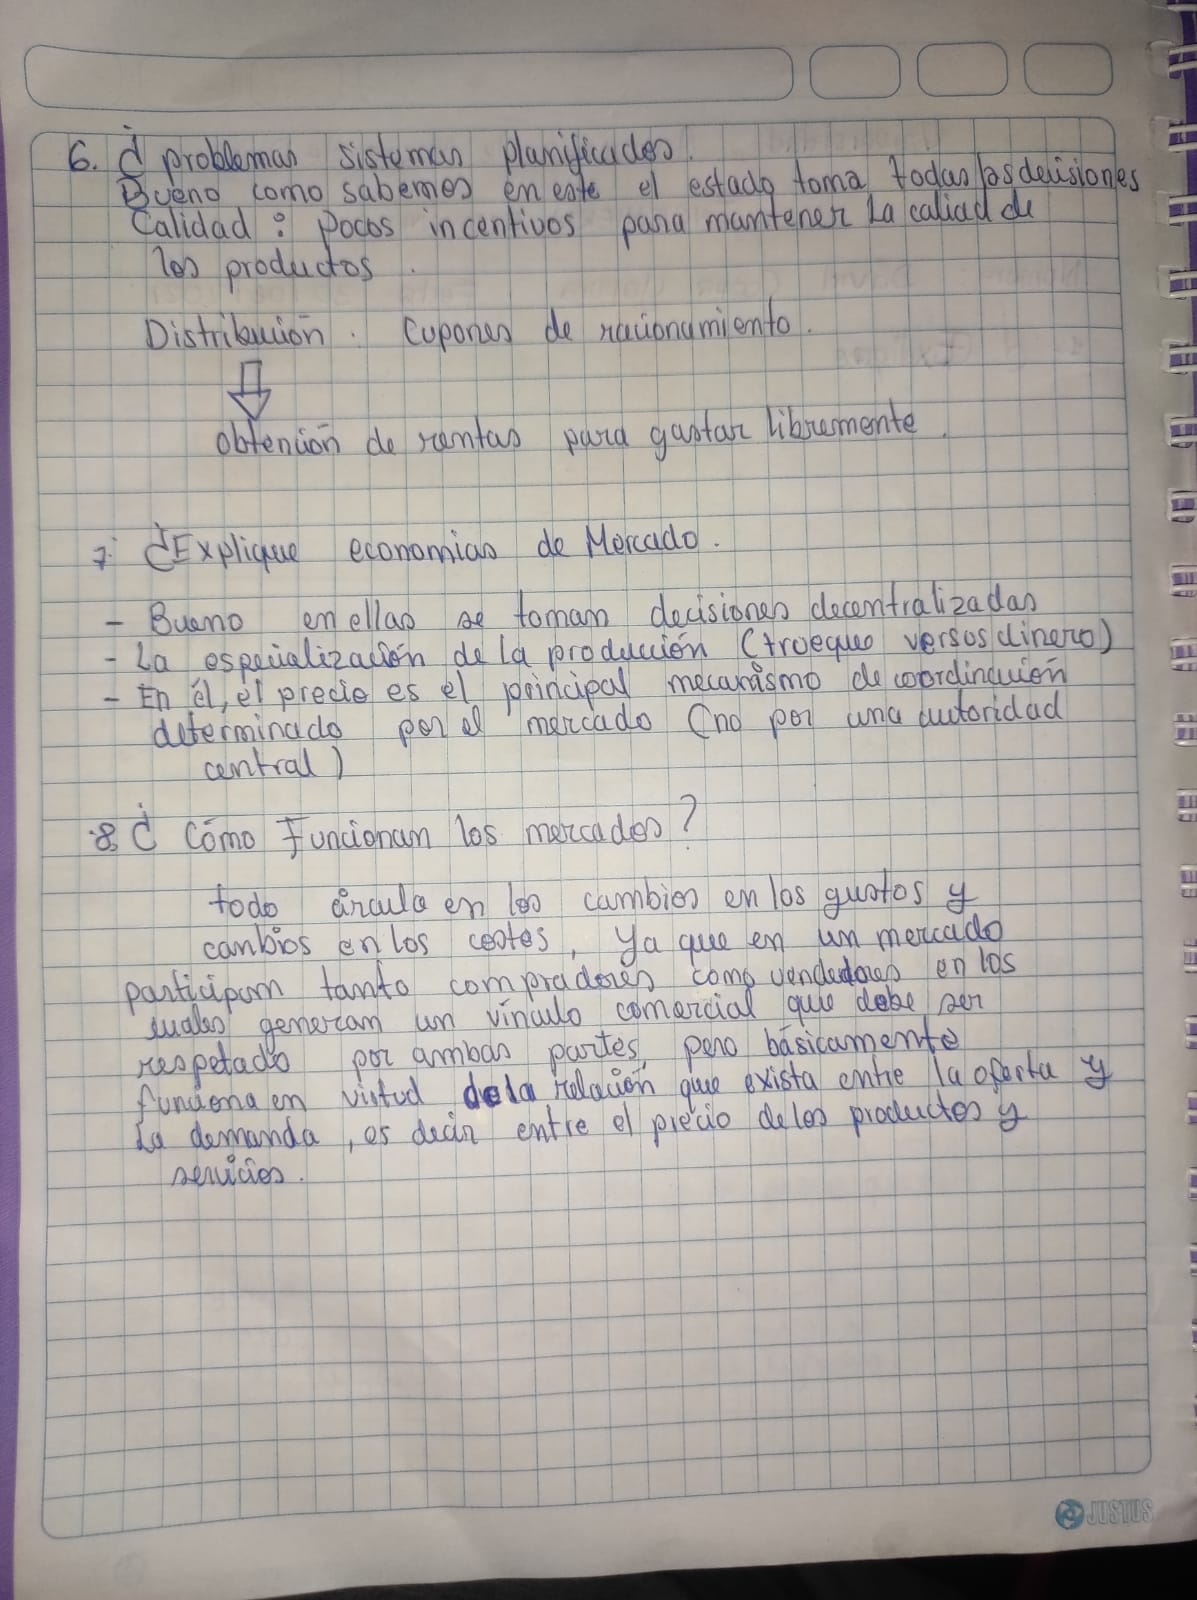 6. ¿ problemas sistemas planificados.
Bueno como sabemos en este el estado toma todas las decisiones
Calidad : Pocos incentivos para mantener La caliad de
los productos.
Distribución. Cupones de racionamiento.
obtención de rentas para gastar libremente.
7. ¿Explique economias de Mercado.
- Bueno en ellas se toman decisiones decentralizadas
- La especialización de la producción (trueque versos dinero)
- En él, el precio es el principal mecanismo de coordinación
determinado por el mercado (no por una autoridad
central)
8. ¿ Cómo Funcionan los mercados?
todo circula en los cambios en los gustos y
canbios en los costes, ya que en un mercado
participan tanto compradores como vendedores en los
cuales generan un vínculo comercial que debe ser
respetado por ambas partes, pero básicamente
funciona en virtud de la relación que exista entre la oferta y
La demanda, es decir entre el precio de los productos y
servicios.
JUSTUS